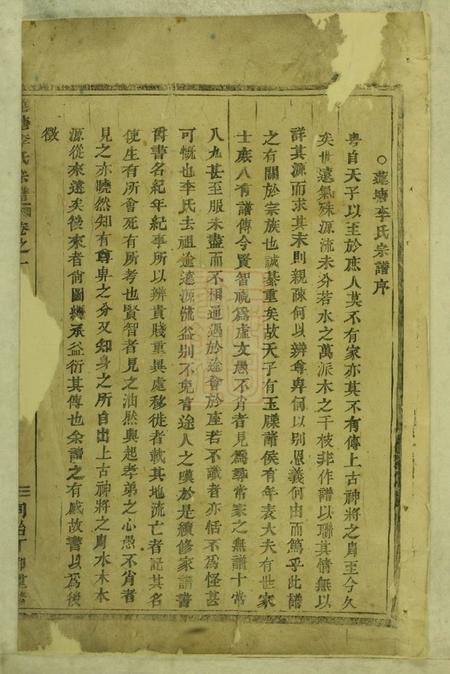 ○蓮塘李氏宗譜序
粤自天子以至於庶人莫不有家亦莫不有傳上古神將之胄至今久
矣世遠氣殊源流未分若水之萬派木之千枝非作譜以聯其情無以
詳其源而求其末則親疎何以辨尊卑何以別恩義何由而篤乎此譜
之有關於宗族也誠綦重矣故天子有玉牒諸侯有年表大夫有世家
士庶人有譜傳今賢智視爲虛文愚不肖者見爲尋常家之無譜十常
八九甚至服未盡而不相通遇於途會於座若不識者亦恬不爲怪甚
可慨也李氏去祖逾遠源流益別不免有途人之嘆於是續修家譜書
爵書名紀年紀事所以辨貴賤重興處移徙者載其地流亡者記其名
使生有所會死有所考也賢智者見之油然興起孝弟之心愚不肖者
見之亦曉然知有尊卑之分又知身之所自出上古神將之胄水木本
源從來遠矣後來者尙圖纘承益衍其傳也余譜之有感故書以爲後
徵
蓮塘李氏宗譜 卷之一
三 同治丁卯重修